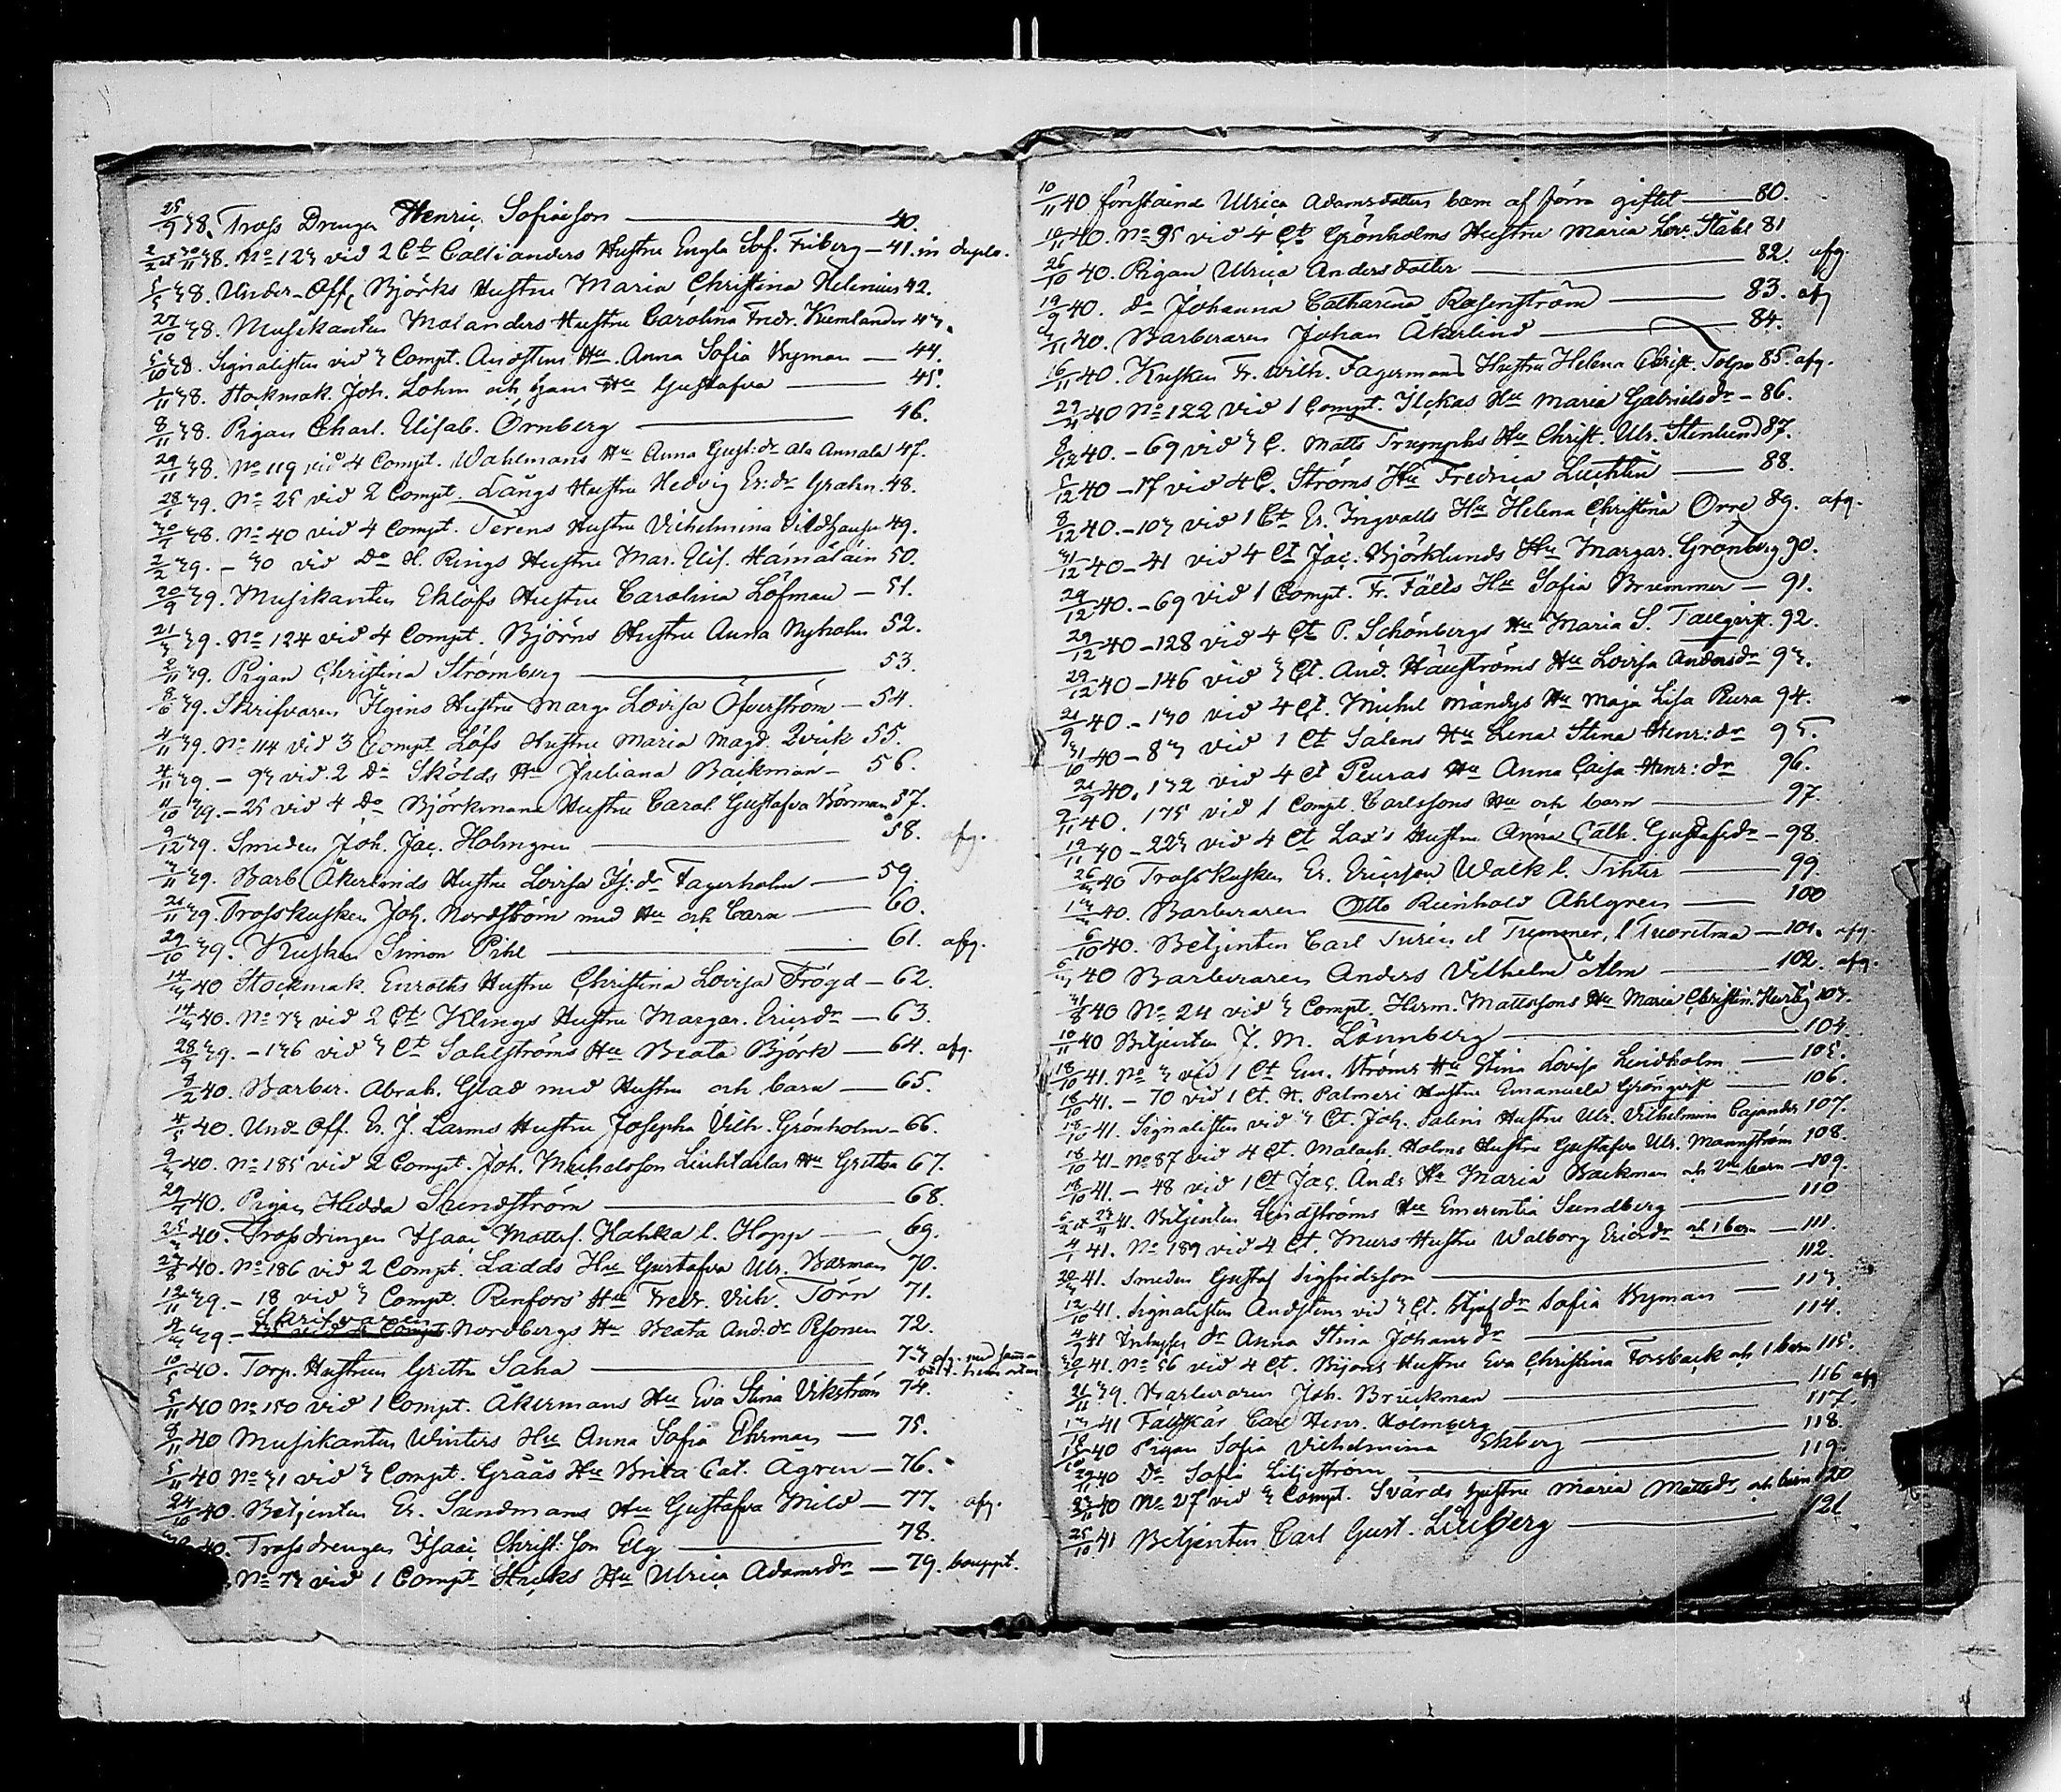 25/9 38. Tross Drengen Henric Sofiæson — 40.
2/2 & 30/11 38. No 123 vid 2 Ct Callianders Hustru Engla Sof. Friberg — 41. in duplo.
5/5 38. Under-Off. Björks Hustru Maria Christina Helenius 42.
27/10 38. Musikanten Molanders Hustru Carolina Fredr. Kumlander 43.
5/10 38. Signalisten vid 3 Compt. Andstens Hu Anna Sofia Nyman — 44.
1/11 38. Stockmak. Joh. Lohm och hans Hu Gustafva — 45.
8/11 38. Pigan Charl. Elisab. Örnberg — 46.
29/11 38. No 119 vid 4 Compt. Wahlmans Hu Anna Gust:dr Ala Annala 47.
28/1 39. No 25 vid 2 Compt. Långs Hustru Hedvig Er:dr Grahn. 48.
38. No 40 vid 4 Compt. Terens Hustru Vilhelmina 49.
2/2 39. — 30 vid Do H. Rings Hustru Mar. Elis. Hämäläin 50.
20/9 39. Musikanten Eklöfs Hustru Carolina Löfman — 51.
21/3 39. No 124 vid 4 Compt. Björns Hustru Anna Nyholm 52.
2/11 39. Pigan Christina Strömberg — 53.
8/6 39. Skrifvaren Ilgins Hustru Marg. Lovisa Öfverström — 54.
4/11 39. No 114 vid 3 Compt. Löfs Hustru Maria Magd. Qvick 55.
4/11 39. — 93 vid 2 Do Skölds Hu Juliana Backman — 56.
11/10 39. — 25 vid 4 Do Björkmans Hustru Carol. Gustafva Törman 57.
9/12 39. Smeden Joh. Jac. Holmgren — 58. afg.
3/11 39. Barb. Åkerlinds Hustru Lovisa Is:dr Fagerholm — 59.
21/11 39. Trosskusken Joh. Nordström med Hu och barn — 60.
29/10 39. Kusken Simon Pihl — 61. afg.
14/3 40 Stockmak. Enroths Hustru Christina Lovisa Frögd — 62.
14/3 40. No 73 vid 2 Ct Klings Hustru Margar. Ericsdr — 63.
28/9 39. — 136 vid 3 Ct Sahlströms Hu Beata Björk — 64. afg.
8/2 40. Barber. Abrah. Glad med Hustru och barn — 65.
4/5 40. Und. Off. Er. J. Larms Hustru Josepha Vilh. Grönholm — 66.
40. No 185 vid 2 Compt. Joh. Michelsson Hu Gretha 67.
40. Pigan Hedda Sundström — 68.
40. Trossdrengen Isaac Mattss. Hahka l. Hopp — 69.
27/8 40. No 186 vid 2 Compt. Ladds Hu Gustafva Ulr. Barman 70.
12/11 39. — 18 vid 3 Compt. Renfors' Hu Fredr. Vilh. Törn 71.
39 — Skrifvaren Nordbergs Hu Beata And:dr Pesonen 72.
10/5 40. Torp. Hustrun Gretha Saha — 73 afg. med
5/11 40 No 150 vid 1 Compt. Åkermans Hu Eva Stina Vikström 74.
8/11 40 Musikanten Winters Hu Anna Sofia Ehrman — 75.
5/11 40 No 31 vid 3 Compt. Gråås Hu Brita Cat. Ågren — 76.
24/10 40. Betjenten Er. Sundmans Hu Gustafva Mild — 77. afg.
40. Trossdrengen Isaac Christ:son Elg — 78.
No 73 vid 1 Compt. Hu Ulrica Adamsdr — 79. bouppt.
10/11 40 förståinde Ulrica Adamsdotters barn af förra giftet — 80.
10/11 40. No 95 vid 4 Ct Grönholms Hustru Maria Lov. Ståhl 81
26/10 40. Pigan Ulrica Andersdotter — 82. afg.
19/9 40. do Johanna Catharina Rosenström — 83. afg
3/11 40. Barberaren Johan Åkerlind — 84.
16/11 40. Kusken Fr. Wilh. Fagermans Hustru Helena Christ. Tolpo 85. afg.
40 No 122 vid 1 Compt. Ilckas Hu Maria Gabrielsdr — 86.
8/12 40. — 69 vid 3 C. Matts Trumphs Hu Christ. Ulr. Stenlund 87.
5/12 40 — 17 vid 4 C. Ströms Hu Fredrica Luchtin — 88.
8/12 40. — 103 vid 1 Ct Er. Ingvalls Hu Helena Christina Orre 89. afg.
31/12 40 — 41 vid 4 Ct Jac. Björklunds Hu Margar. Grönberg 90.
29/12 40. — 69 vid 1 Compt. Fr. Fälts Hu Sofia Brummer — 91.
29/12 40 — 128 vid 4 Ct P. Schönbergs Hu Maria S. Tallqvist. 92.
29/12 40 — 146 vid 3 Ct. And. Häuströms Hu Lovisa Andersdr 93.
21/9 40. — 130 vid 4 Ct. Michel Mändys Hu Maja Lisa Piura 94.
31/10 40 — 83 vid 1 Ct Salens Hu Lena Stina Henr:dr 95.
21/9 40. 132 vid 4 Ct Peuras Hu Anna Caisa Henr:dr 96.
2/11 40. 175 vid 1 Compt. Carlssons Hu och barn — 97.
19/11 40 — 223 vid 4 Ct Lax's Hustru Anna Cath. Gustafsdr — 98.
40 Trosskusken Er. Ericsson Walk l. Tihter — 99
40. Barberaren Otto Reinhold Ahlgren — 100
6/10 40. Betjenten Carl Turén el Tummer, l Tuoretma — 101. afg.
40 Barberaren Anders Vilhelm Alm — 102. afg.
31/8 40 No 24 vid 3 Compt. Herm. Mattssons Hu Maria Christin. Hurtig 103.
10/11 40 Betjenten J. M. Lönnberg — 104.
18/10 41. No 3 vid 1 Ct Em. Ströms Hu Stina Lovisa Lindholm — 105.
18/10 41. — 70 vid 1 Ct. H. Palmeri Hustru Emanuela Grönqvist — 106.
18/10 41. Signalisten vid 3 Ct. Joh. Salens Hustru Ulr. Vilhelmina Cajander 107.
18/10 41 — No 87 vid 4 Ct. Malach. Holms Hustru Gustafva Ulr. Mannström 108.
18/10 41. — 48 vid 1 Ct Jac. Ands Hu Maria Backman och 2ne barn — 109.
41. Betjenten Lindströms Hu Emerentia Sundberg — 110
41. No 189 vid 4 Ct. Murs Hustru Walborg Ericsdr och 1 barn — 111.
41. Smeden Gustaf Sigfridsson — 112.
12/10 41. Signalisten Andstens vid 3 Ct. Stjufdr Sofia Nyman — 113.
4/9 41 dr Anna Stina Johansdr — 114.
41. No 56 vid 4 Ct. Bijons Hustru Eva Christina Forsback och 1 barn 115.
21/11 39. Barberaren Joh. Bruckman — 116 afg
41 Fältskär Carl Henr. Holmberg — 117.
40 Pigan Sofia Vilhelmina Ekberg — 118.
29/11 40 Do Sofia Liljeström — 119.
23/11 40 No 27 vid 3 Compt. Svärds Hustru Maria Mattsdr och barn 120
25/10 41 Betjenten Carl Gust. Liljeberg — 121